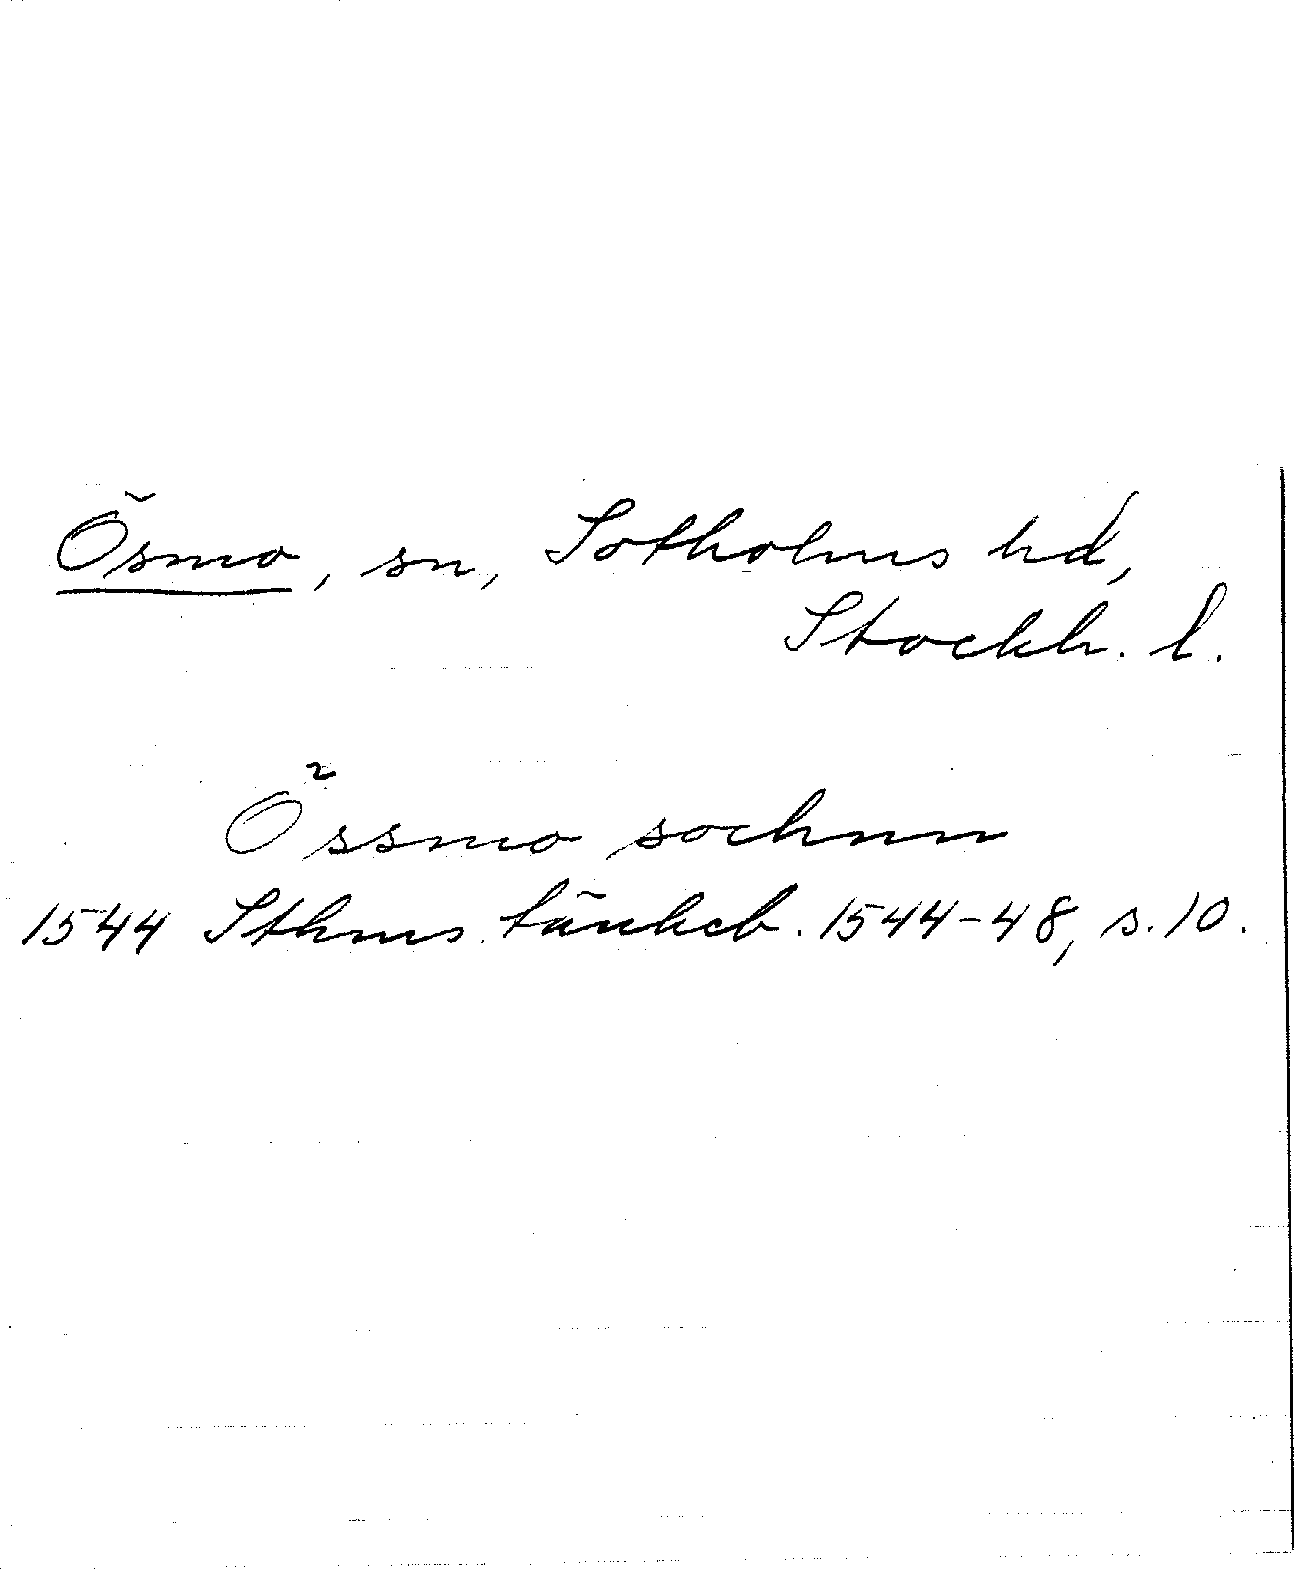 Ösmo, sn, Sotholms hd,
Stockh. l.
Össmo sochnn
1544 Sthms tänkeb. 1544-48, s. 10.